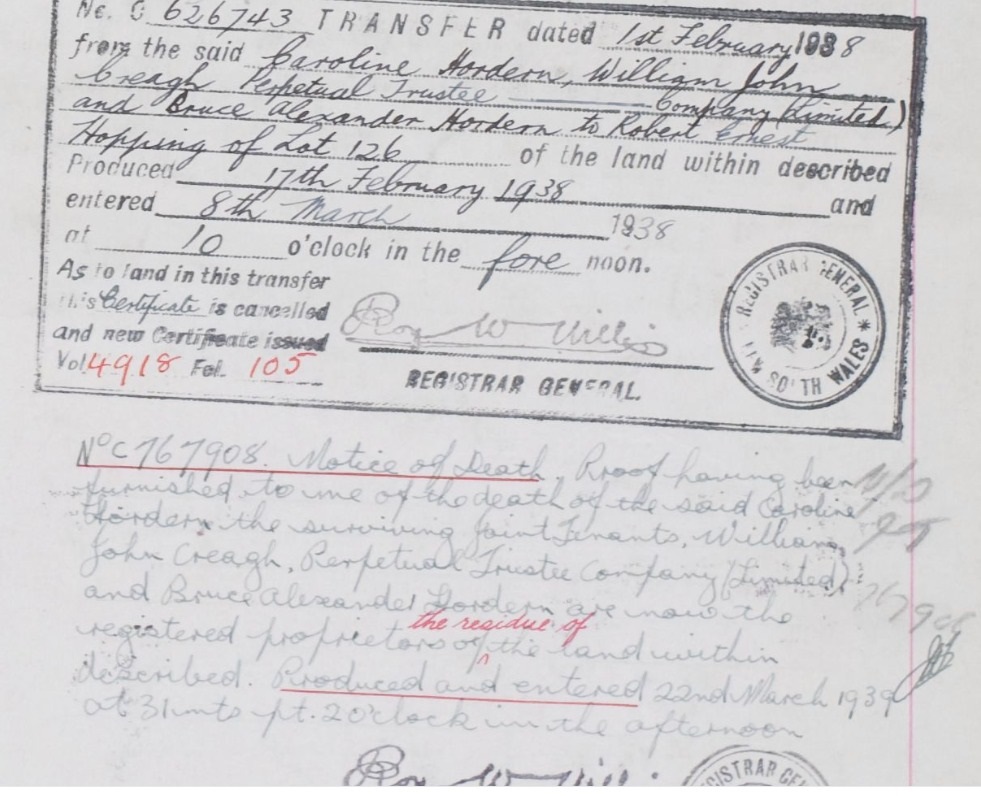 No. C 626743 TRANSFER dated 1st February 1938
from the said Caroline Hordern, William John
Creagh Perpetual Trustee Company (Limited)
and Bruce Alexander Hordern to Robert Ernest
Hopping of Lot 126 of the land within described
Produced 17th February 1938 and
entered 8th March 1938
at 10 o'clock in the fore noon.
As to land in this transfer
this Certificate is cancelled
and new Certificate issued
Vol 4918 Fol. 105
Roy W Willis
REGISTRAR GENERAL.
REGISTRAR GENERAL * SOUTH WALES *
No C767908. Notice of Death. Proof having been
furnished to me of the death of the said Caroline
Hordern the surviving Joint Tenants, William
John Creagh, Perpetual Trustee Company (Limited)
and Bruce Alexander Hordern are now the
the residue of
registered proprietors of ^ the land within
described. Produced and entered 22nd March 1939
at 31 mts pt. 2 o'clock in the afternoon
Roy W Willi